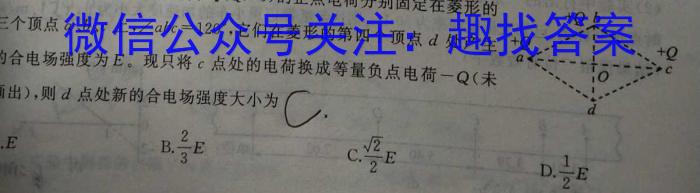 的正点电荷分别固定在菱形的
三个顶点
abc=120
它们在菱形的第四个顶点 d 处
的合电场强度为 E。现只将 c 点处的电荷换成等量负点电荷－Q(未
画出),则 d 点处新的合电场强度大小为
C.
微信公众号关注：趣找答案
Q b
+Q
a
O
c
d
.E
B. 2/3 E
C. √2/2 E
D. 1/2 E